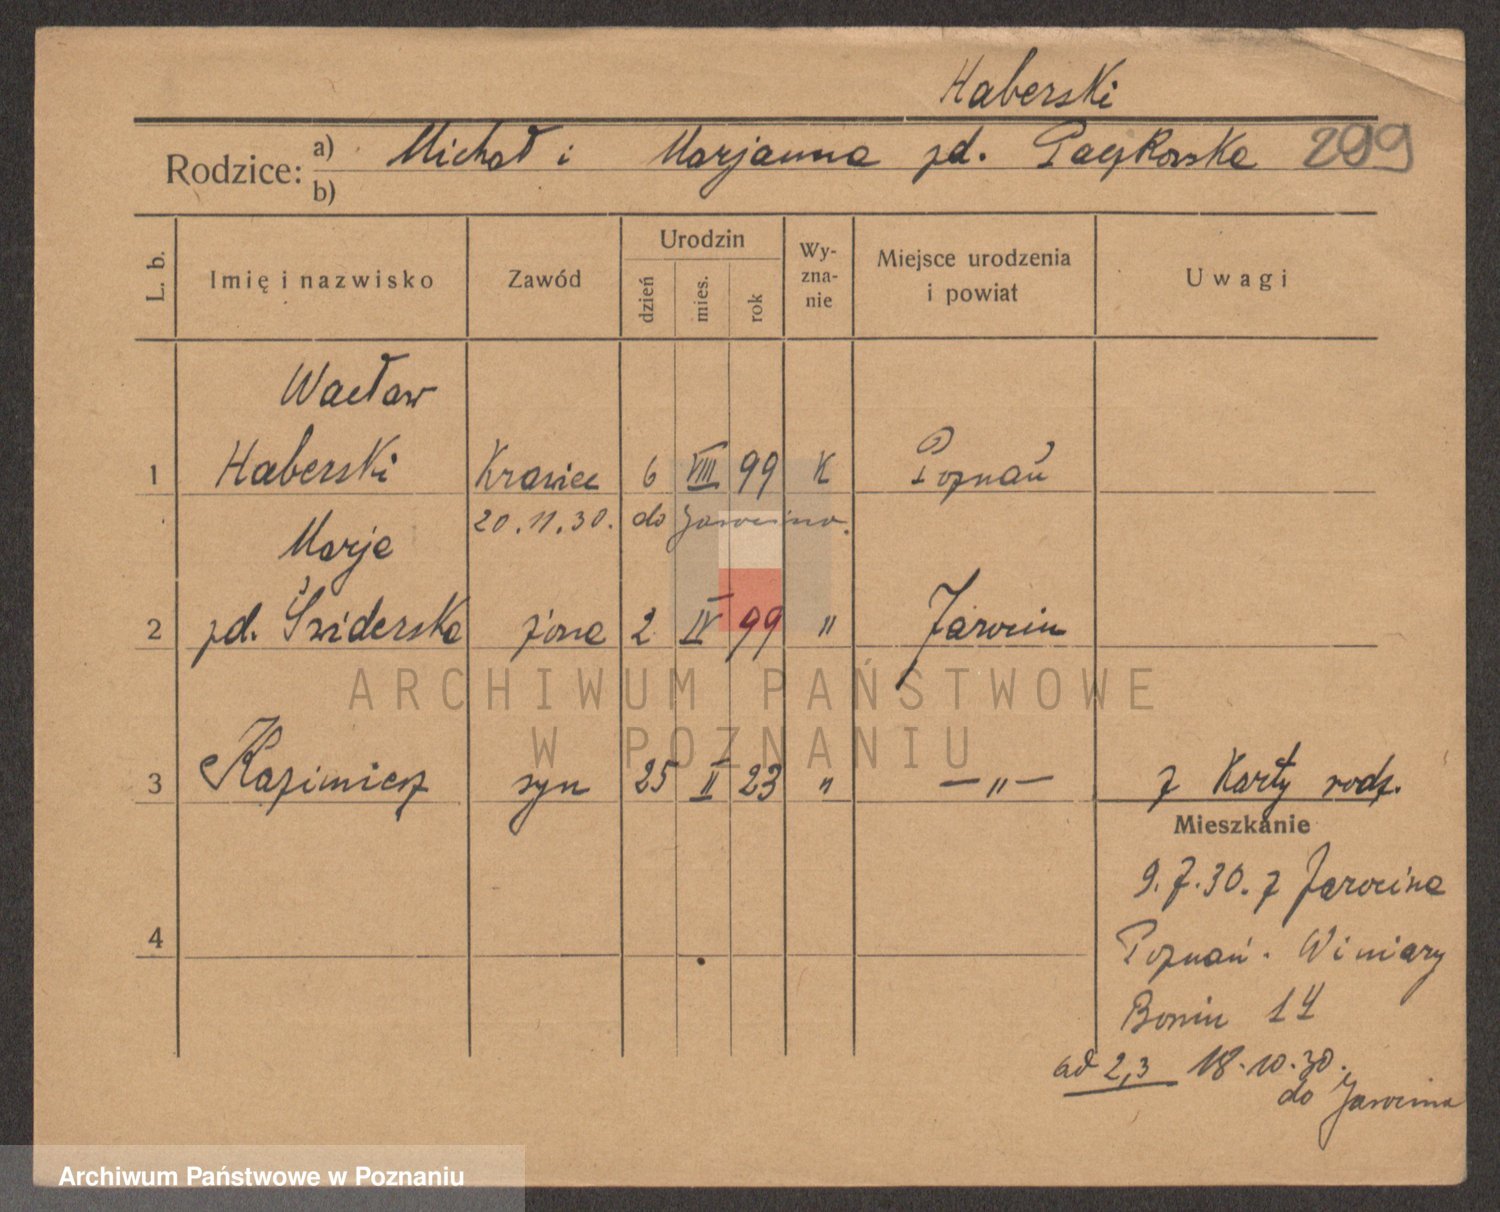 Haberski
Rodzice: a) Michał i Marjanna zd. 299
b)
L. b. Imię i nazwisko Zawód Urodzin dzień mies. rok Wyznanie Miejsce urodzenia i powiat Uwagi
Wacław
1 Haberski Krawiec 6 VIII 99 K Poznań
20.11.30. do Jarocina.
Marja
2 zd. Świderska żona 2 IV 99 " Jarocin
ARCHIWUM PAŃSTWOWE
W POZNANIU
3 Kazimierz syn 25 II 23 " —"— z Karty rodz.
Mieszkanie
9.7.30. z Jarocina
4 Poznań. Winiary
Bonin 14
ad 2,3 18.10.30.
do Jarocina
Archiwum Państwowe w Poznaniu